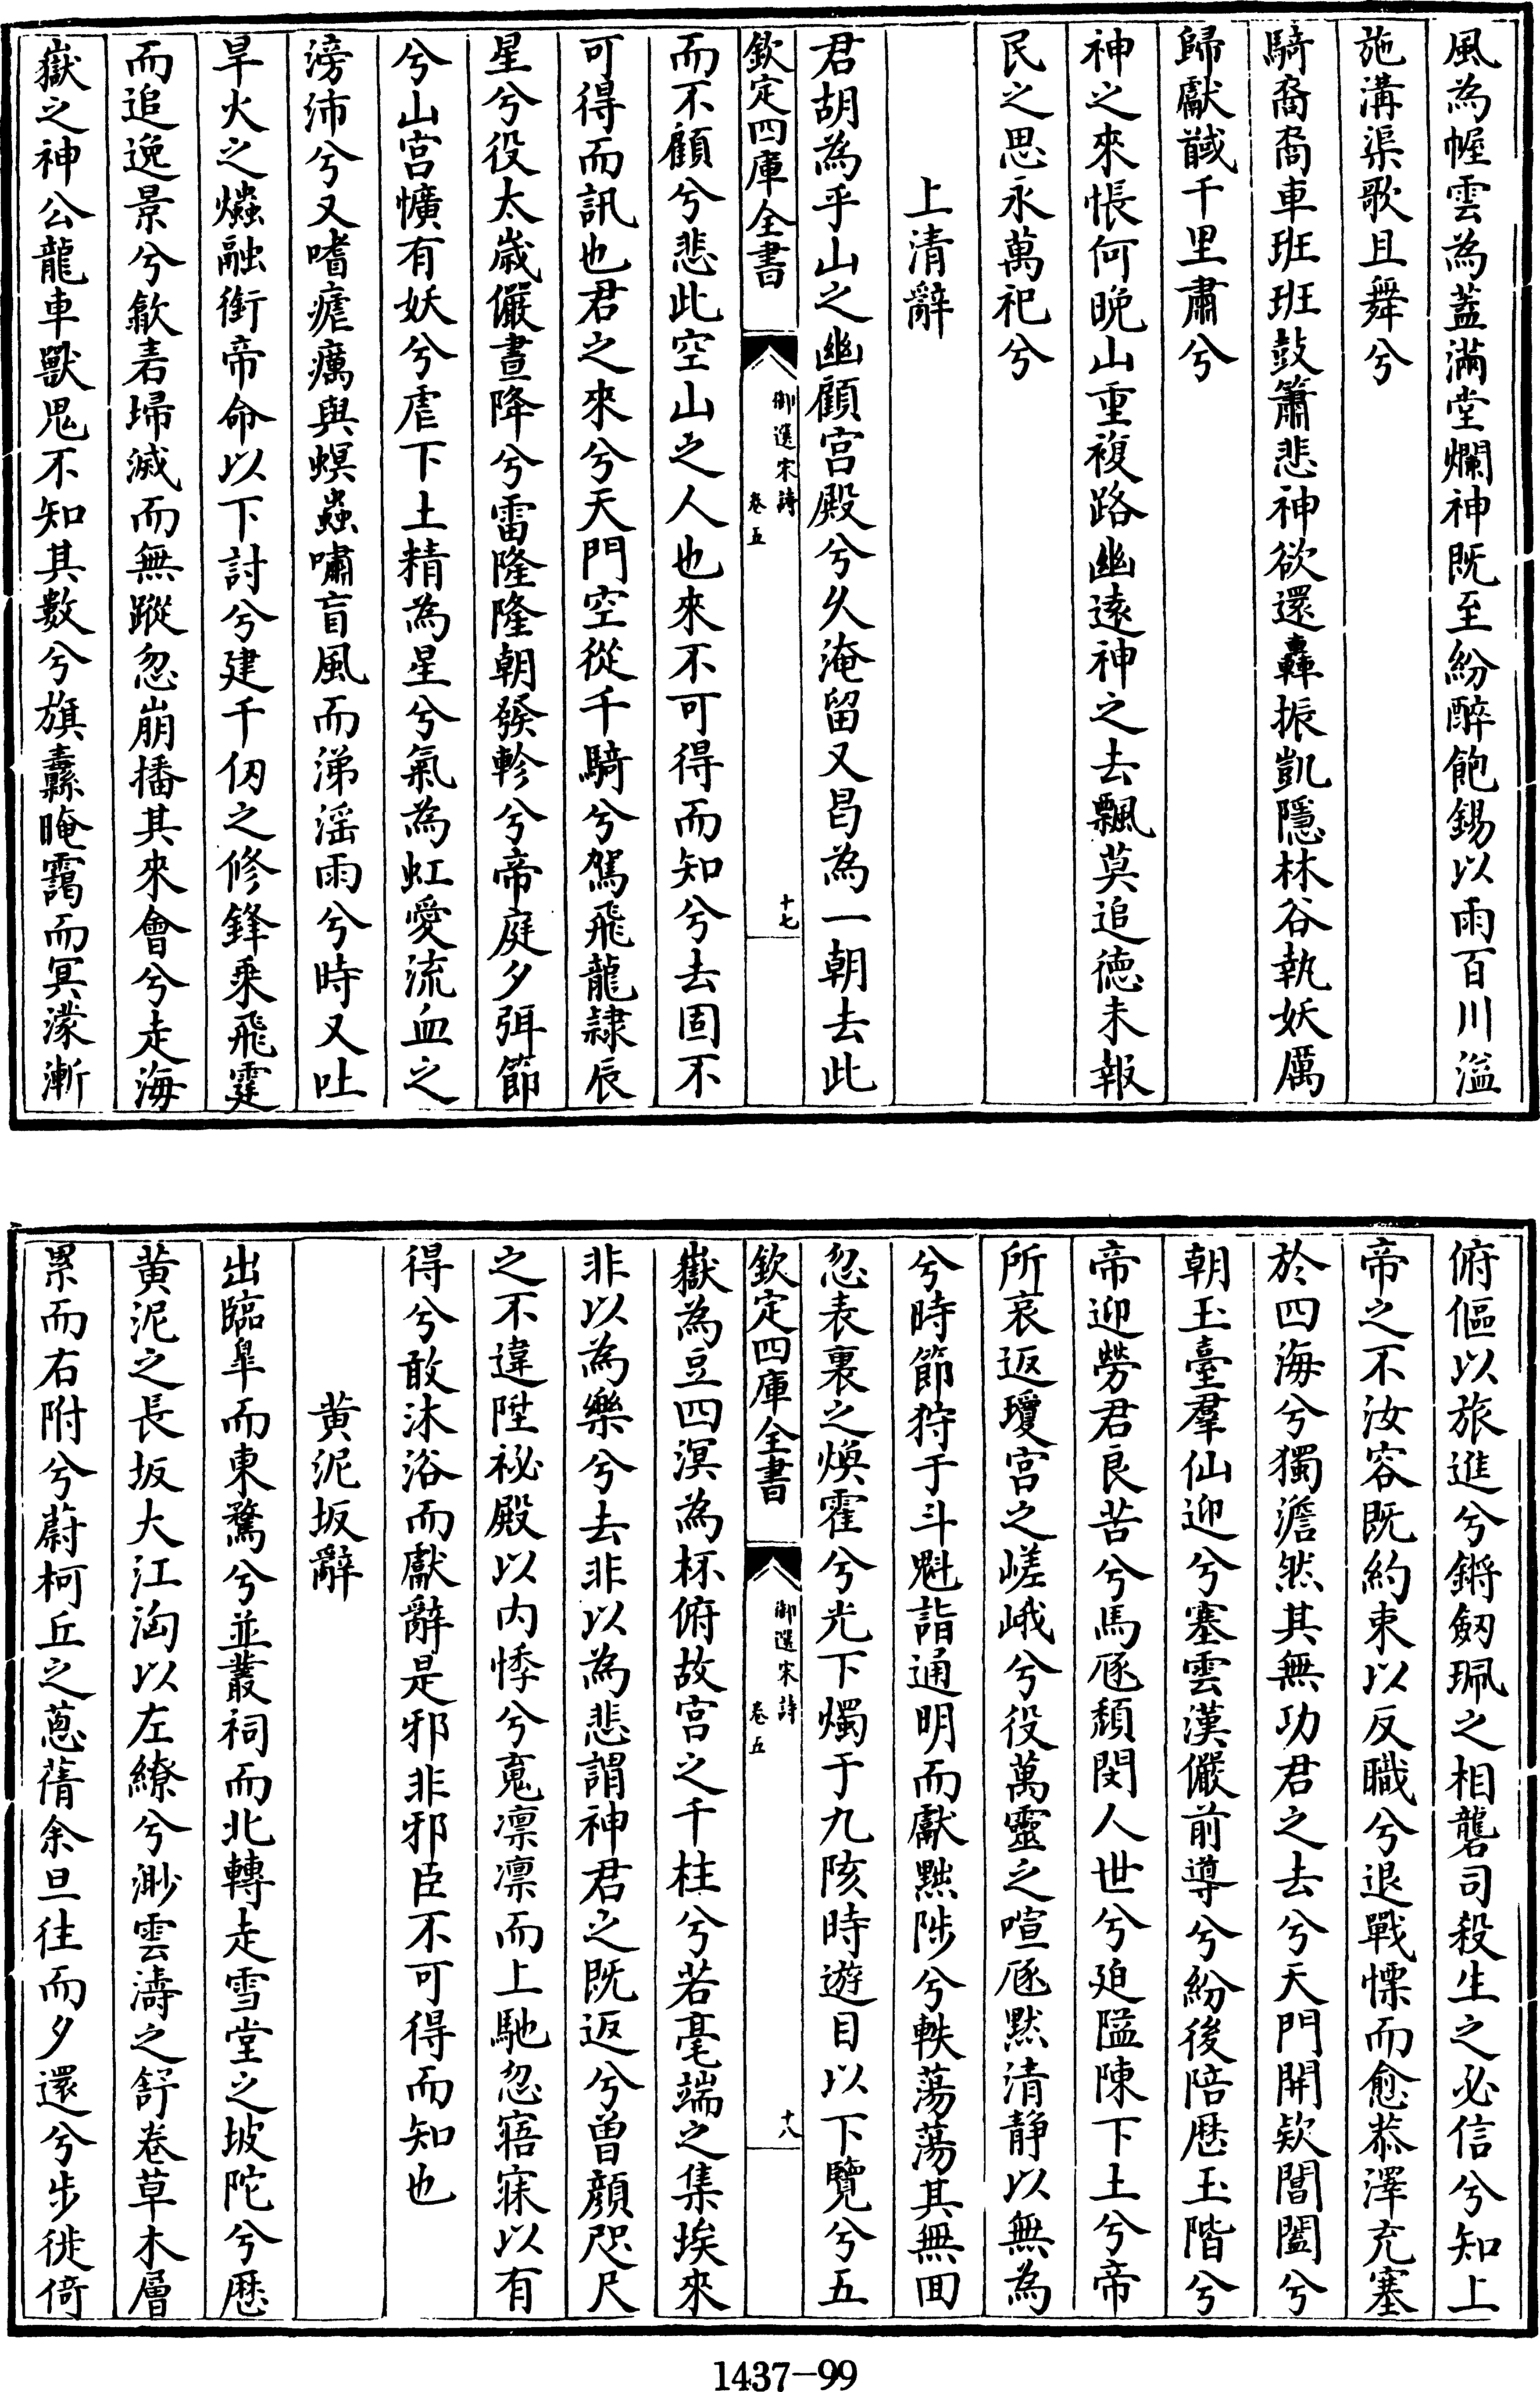 風為幄雲為蓋滿堂爛神既至紛醉飽錫以雨百川溢
施溝渠歌且舞兮
騎裔裔車班班鼓簫悲神欲還轟振凱隱林谷執妖厲
歸獻馘千里肅兮
神之來悵何晚山重複路幽遠神之去飄莫追德未報
民之思永萬祀兮
上清辭
君胡為乎山之幽顧宫殿兮久淹留又曷為一朝去此
欽定四庫全書
御選宋詩
卷五
十七
而不顧兮悲此空山之人也來不可得而知兮去固不
可得而訊也君之來兮天門空從千騎兮駕飛龍隷辰
星兮役太嵗儼晝降兮雷隆隆朝發軫兮帝庭夕弭節
兮山宫懭有妖兮虐下土精為星兮氣為虹愛流血之
滂沛兮又嗜瘧癘與螟蟲嘯盲風而涕淫雨兮時又吐
旱火之爞融銜帝命以下討兮建千仞之修鋒乘飛霆
而追逸景兮歙砉掃滅而無蹤忽崩播其來會兮走海
嶽之神公龍車獸鬼不知其數兮旗纛晻靄而冥濛漸
俯傴以旅進兮鏘劒珮之相礱司殺生之必信兮知上
帝之不汝容既約束以反職兮退戰慄而愈恭澤充塞
於四海兮獨澹然其無功君之去兮天門開欵閶闔兮
朝玉臺羣仙迎兮塞雲漢儼前導兮紛後陪歴玉階兮
帝迎勞君良苦兮馬豗頽閔人世兮廹隘陳下土兮帝
所哀返瓊宫之嵯峨兮役萬靈之喧豗默清靜以無為
兮時節狩于斗魁詣通明而獻黜陟兮軼蕩蕩其無回
忽表裏之煥霍兮光下燭于九陔時遊目以下覽兮五
欽定四庫全書
御選宋詩
卷五
十八
嶽為豆四溟為杯俯故宫之千柱兮若毫端之集埃來
非以為樂兮去非以為悲謂神君之既返兮曽顔咫尺
之不違陞祕殿以内悸兮䰟凛凛而上馳忽寤寐以有
得兮敢沐浴而獻辭是邪非邪臣不可得而知也
黄泥坂辭
出臨皐而東騖兮並叢祠而北轉走雪堂之坡陀兮歴
黄泥之長坂大江洶以左繚兮渺雲濤之舒卷草木層
累而右附兮蔚柯丘之蔥蒨余旦往而夕還兮步徙倚
1437-99